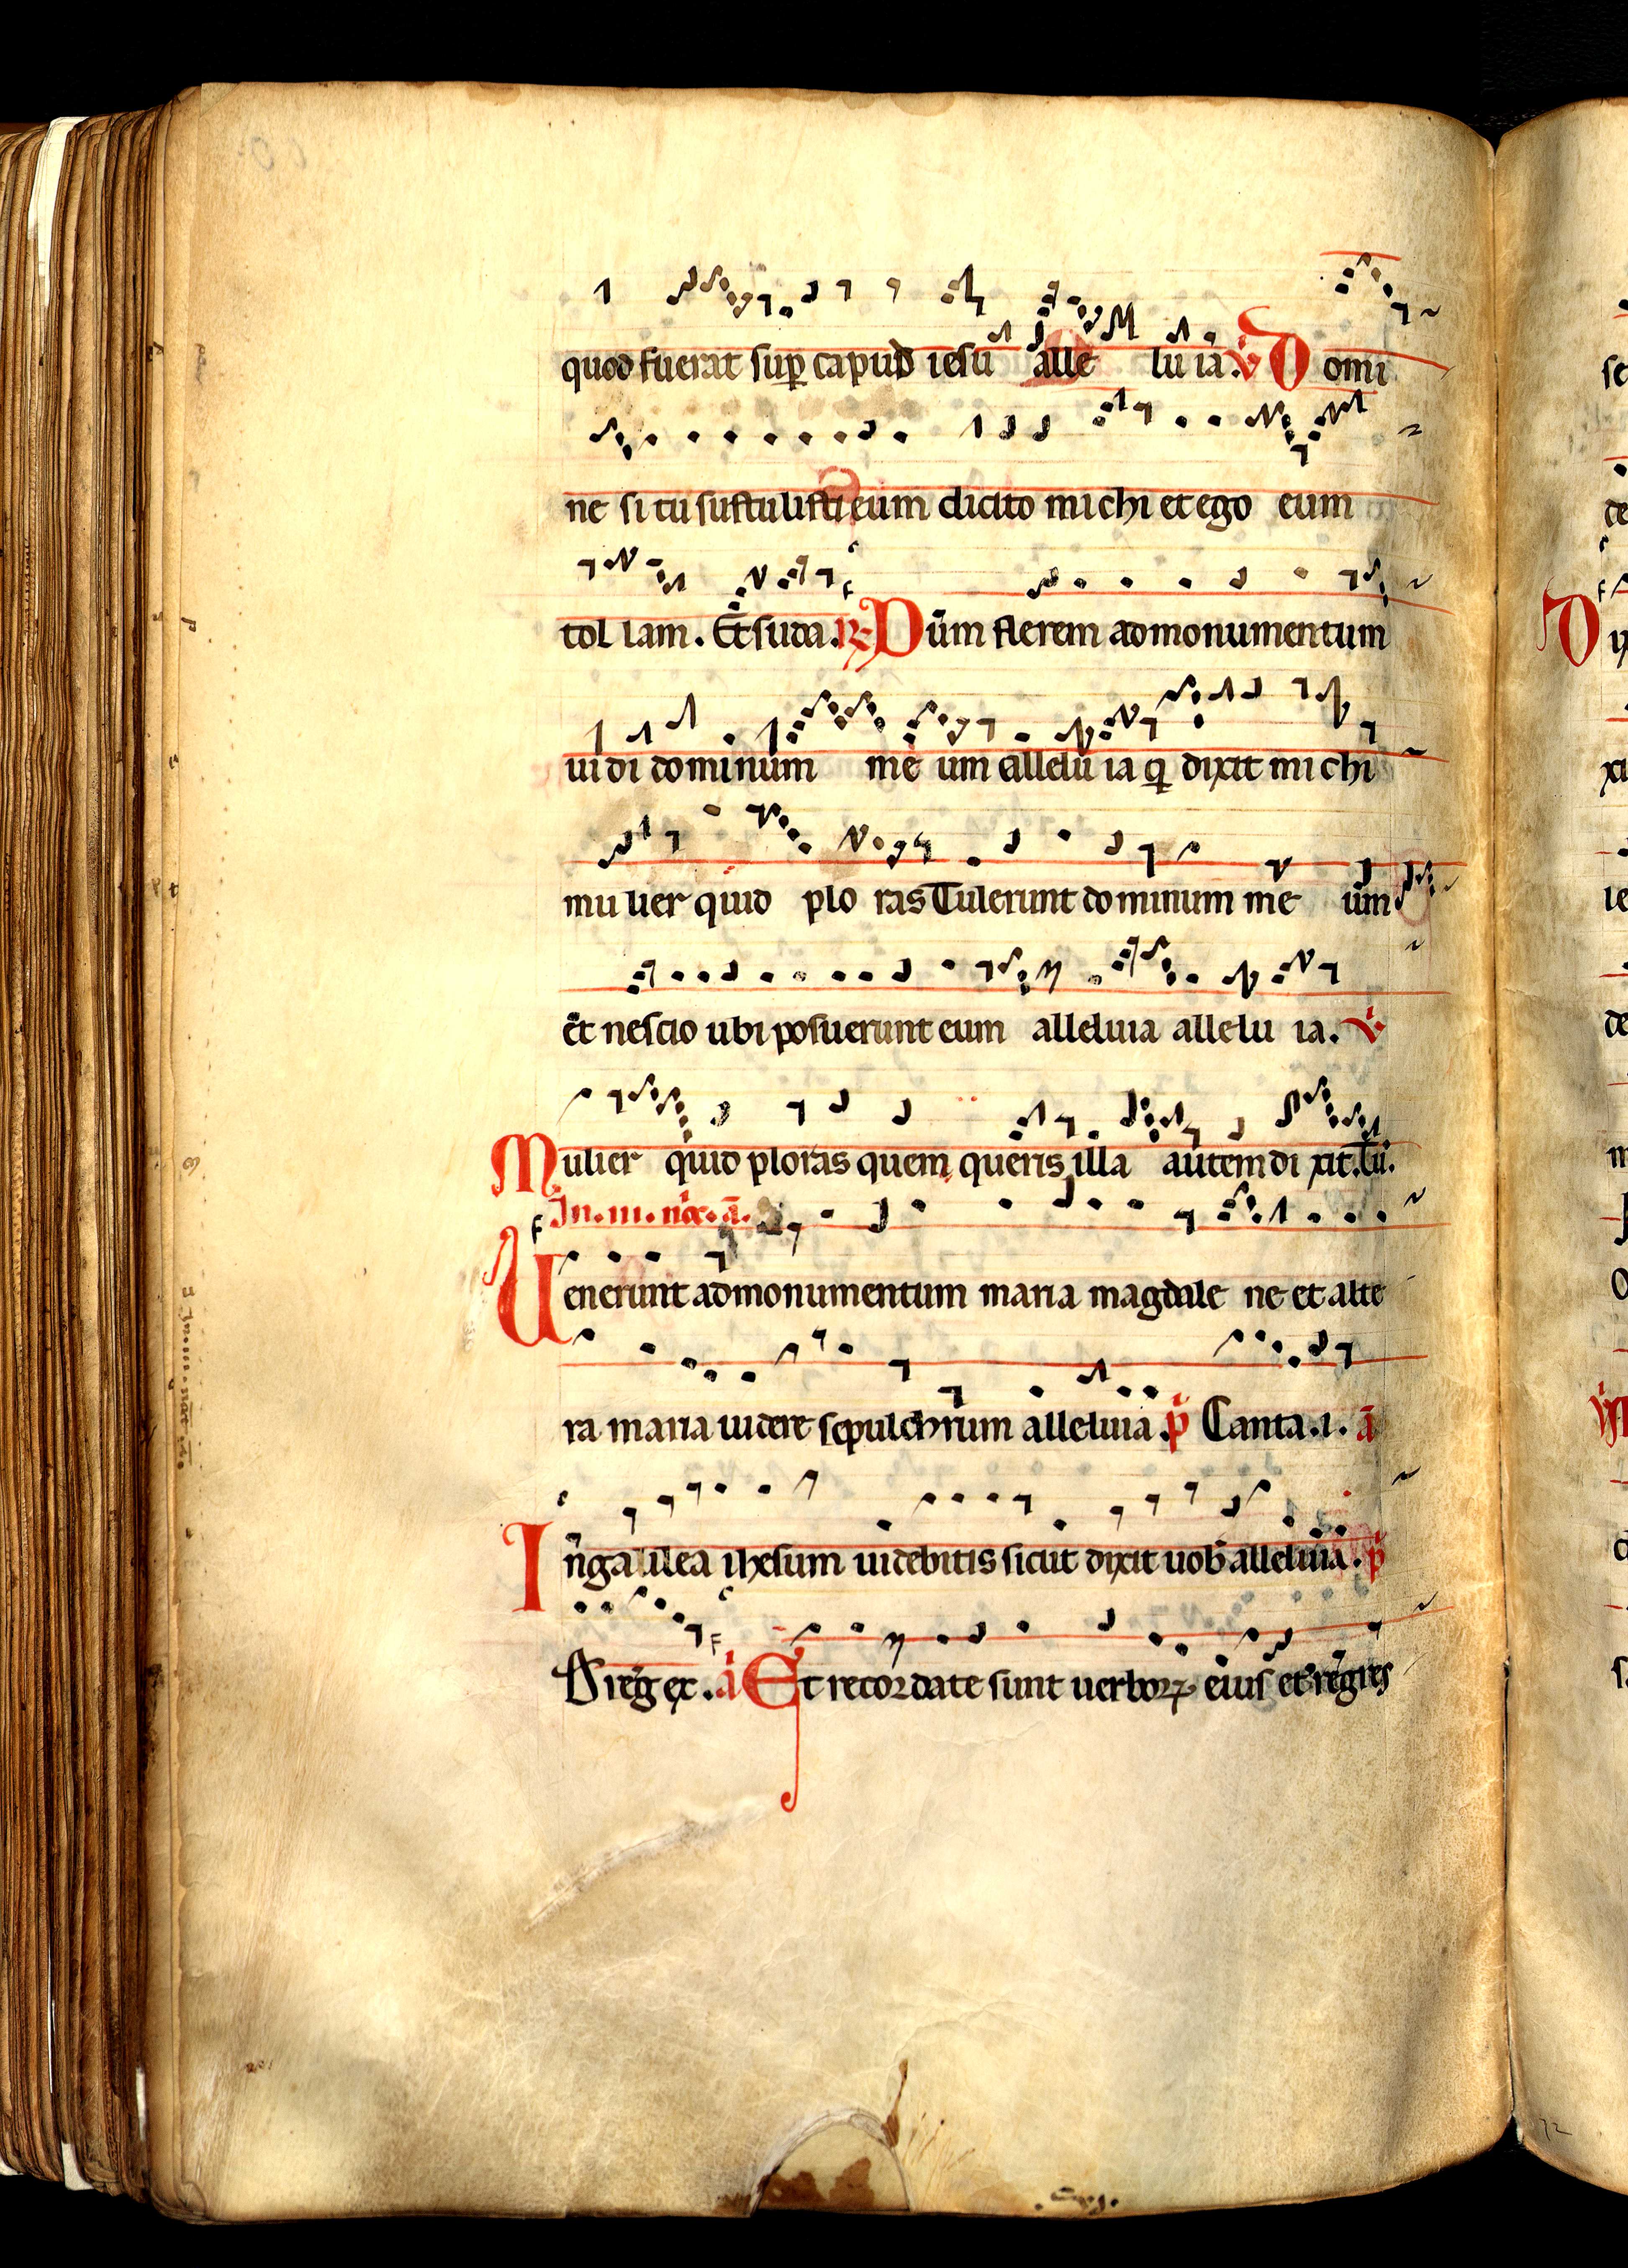 quod fuerat sup̄ capud iesu alle lu ia. v̇ Domi
ne si tu sustulisti eum dicito michi et ego eum
tol lam. Et suda. R. Dum flerem ad monumentum
uidi dominum me um alleluia q̄ dixit michi
mulier quid plo ras Tulerunt dominum me um
et nescio ubi posuerunt eum alleluia allelu ia. v̇
Mulier quid ploras quem queris illa autem di xit. Tu.
In. iii. noc. a.
Uenerunt ad monumentum maria magdale ne et alte
ra maria uidere sepulchrum alleluia. p̄ Canta. i. ā
In galilea ihesum uidebitis sicut dixit uob alleluia. p̄
Ds reg ex. a Et recordate sunt uerborꝝ eius et regres